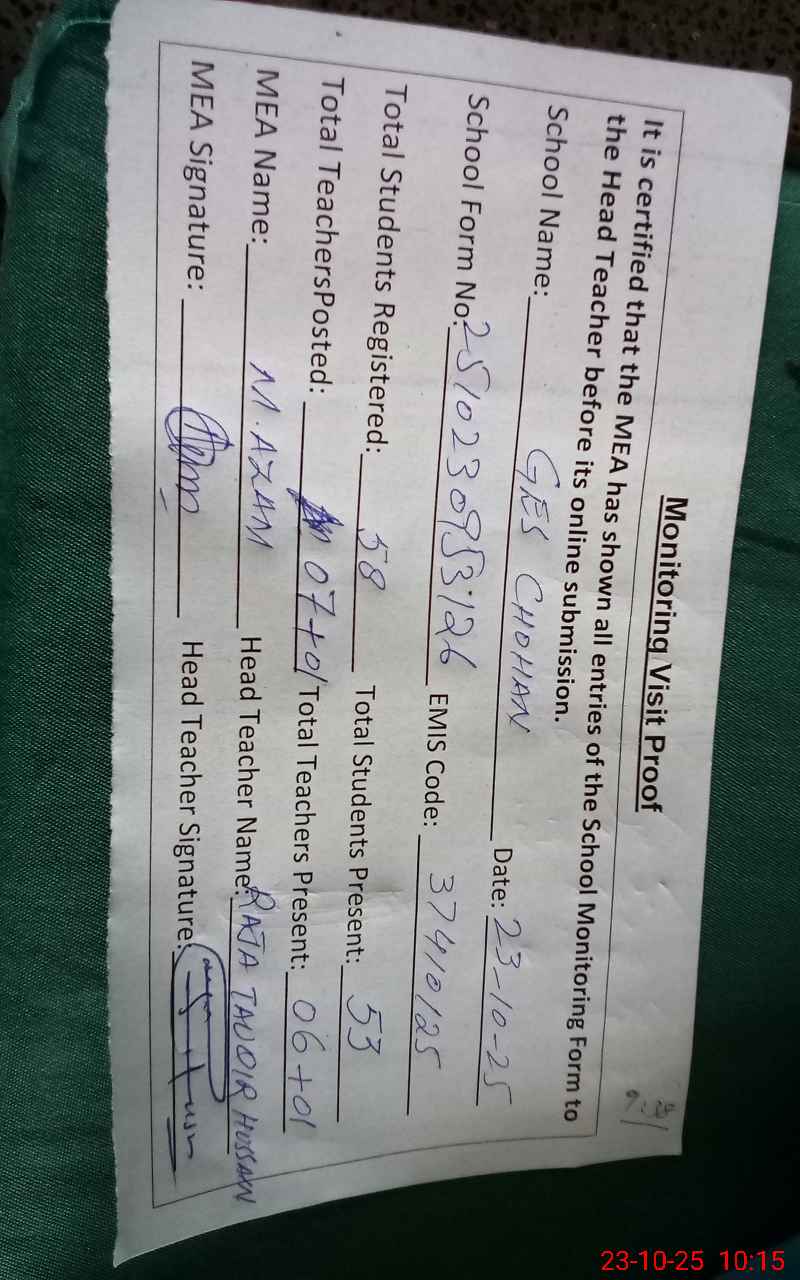 Monitoring Visit Proof
It is certified that the MEA has shown all entries of the School Monitoring Form to
the Head Teacher before its online submission.
School Name: GES CHOHAN Date: 23-10-25
School Form No: 2510230953126 EMIS Code: 37410125
Total Students Registered: 58 Total Students Present: 53
Total TeachersPosted: 07+01 Total Teachers Present: 06+01
MEA Name: M. AZAM Head Teacher Name: RAJA TAUQIR HUSSAIN
MEA Signature: Head Teacher Signature:
23-10-25 10:15